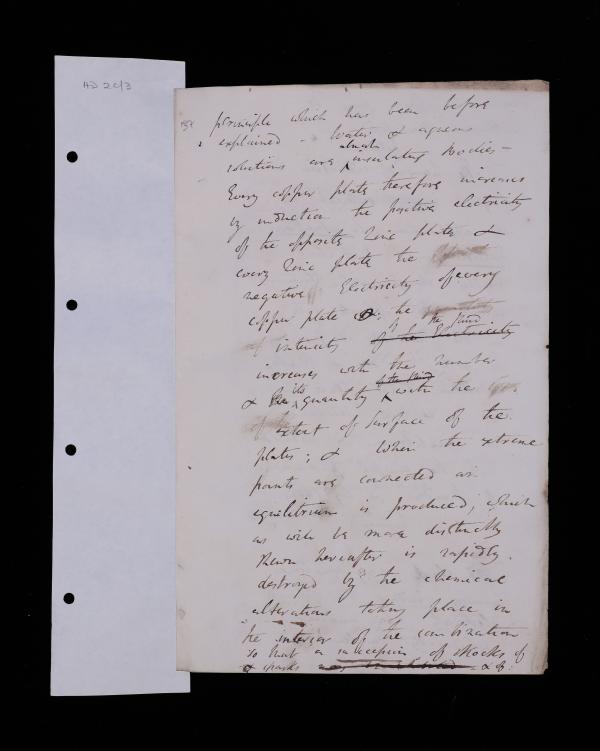 AD 2C/3
principle which has been before
explained - Water & aqueous
almost
solutions are insulating bodies -
Every copper plate therefore increases
by induction the positive electricity
of the opposite Zinc plate &
every Zinc plate the
negative Electricity of every
copper plate &; the
of the fluid
intensity of the Electricity
increases with the number
of the fluid
& the its quantity with the
extent of Surface of the
plates; & When the extreme
points are connected an
equilibrium is produced; which
as will be more distinctly
shewn hereafter is rapidly
destroyed by the chemical
alterations taking place in
the interior of the combination
so that a succession of shocks of
& sparks & of: